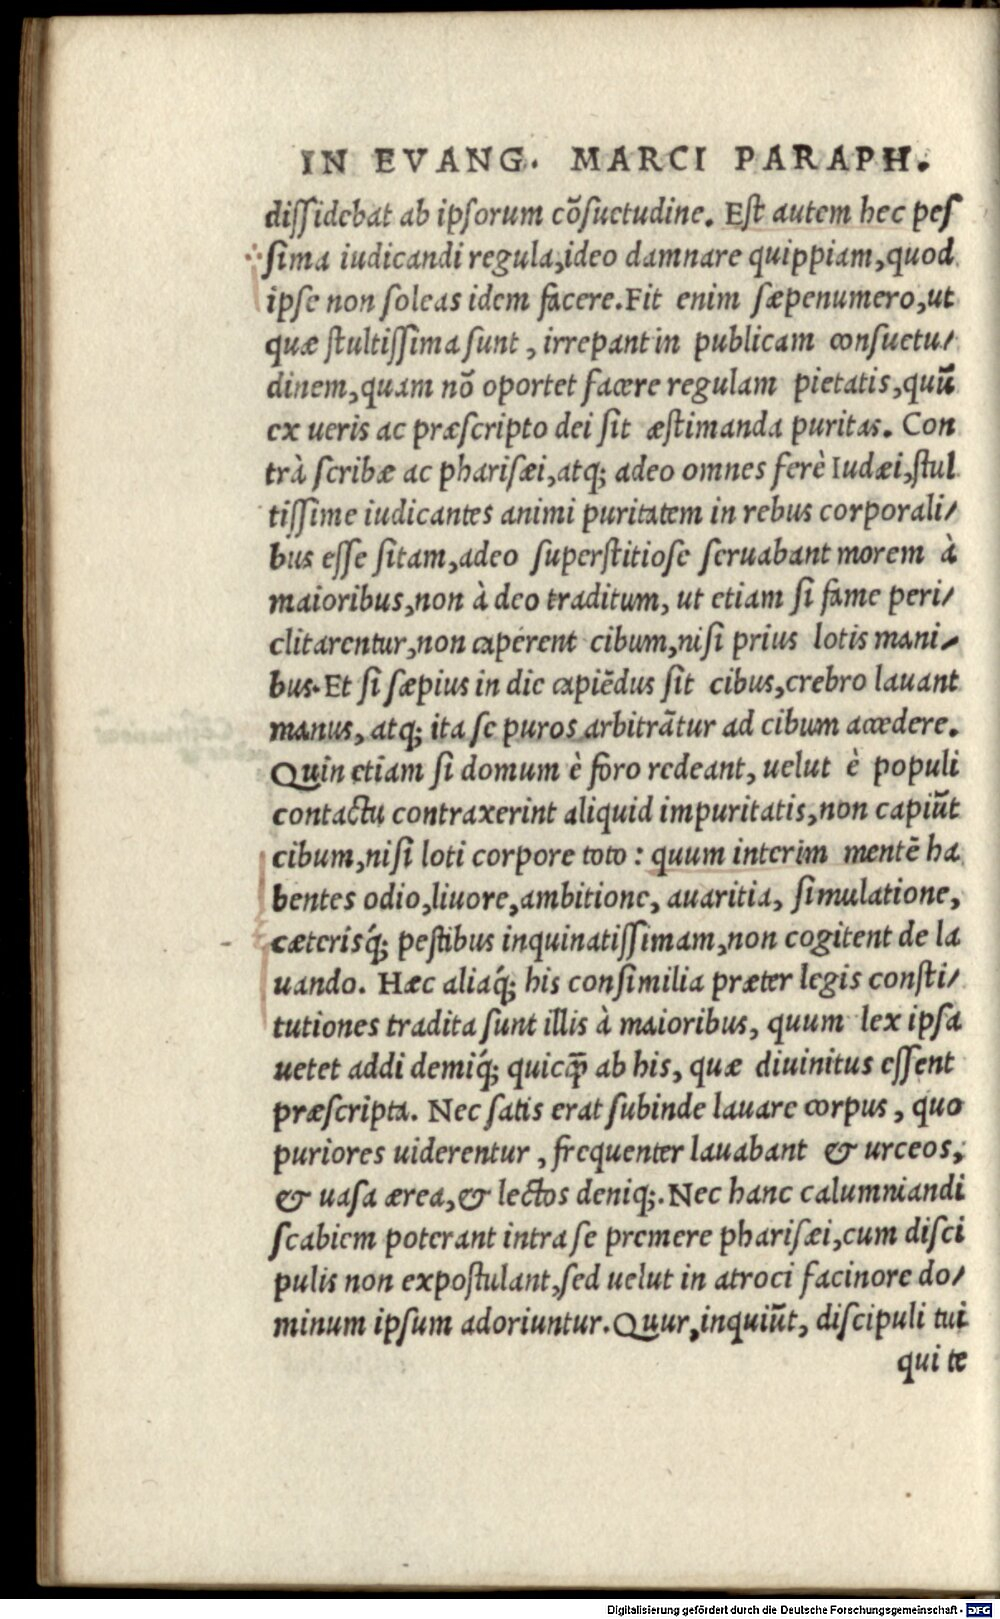 IN EVANG. MARCI PARAPH.
dissidebat ab ipsorum cōsuetudine. Est autem hec pes
sima iudicandi regula, ideo damnare quippiam, quod
ipse non soleas idem facere. Fit enim sæpenumero, ut
quæ stultissima sunt, irrepant in publicam consuetu/
dinem, quam nō oportet facere regulam pietatis, quū
ex ueris ac præscripto dei sit æstimanda puritas. Con
trà scribæ ac pharisæi, atq; adeo omnes ferè Iudæi, stul
tissime iudicantes animi puritatem in rebus corporali/
bus esse sitam, adeo superstitiose seruabant morem à
maioribus, non à deo traditum, ut etiam si fame peri/
clitarentur, non caperent cibum, nisi prius lotis mani/
bus. Et si sæpius in die capiēdus sit cibus, crebro lauant
manus, atq; ita se puros arbitrātur ad cibum accedere.
Quin etiam si domum è foro redeant, uelut è populi
contactu contraxerint aliquid impuritatis, non capiūt
cibum, nisi loti corpore toto : quum interim mentē ha
bentes odio, liuore, ambitione, auaritia, simulatione,
cæterisq́; pestibus inquinatissimam, non cogitent de la
uando. Hæc aliaq́; his consimilia præter legis consti/
tutiones tradita sunt illis à maioribus, quum lex ipsa
uetet addi demiq́; quicq̄ ab his, quæ diuinitus essent
præscripta. Nec satis erat subinde lauare corpus, quo
puriores uiderentur, frequenter lauabant & urceos,
& uasa ærea, & lectos deniq;. Nec hanc calumniandi
scabiem poterant intra se premere pharisæi, cum disci
pulis non expostulant, sed uelut in atroci facinore do/
minum ipsum adoriuntur. Quur, inquiūt, discipuli tui
qui te
Digitalisierung gefördert durch die Deutsche Forschungsgemeinschaft - DFG